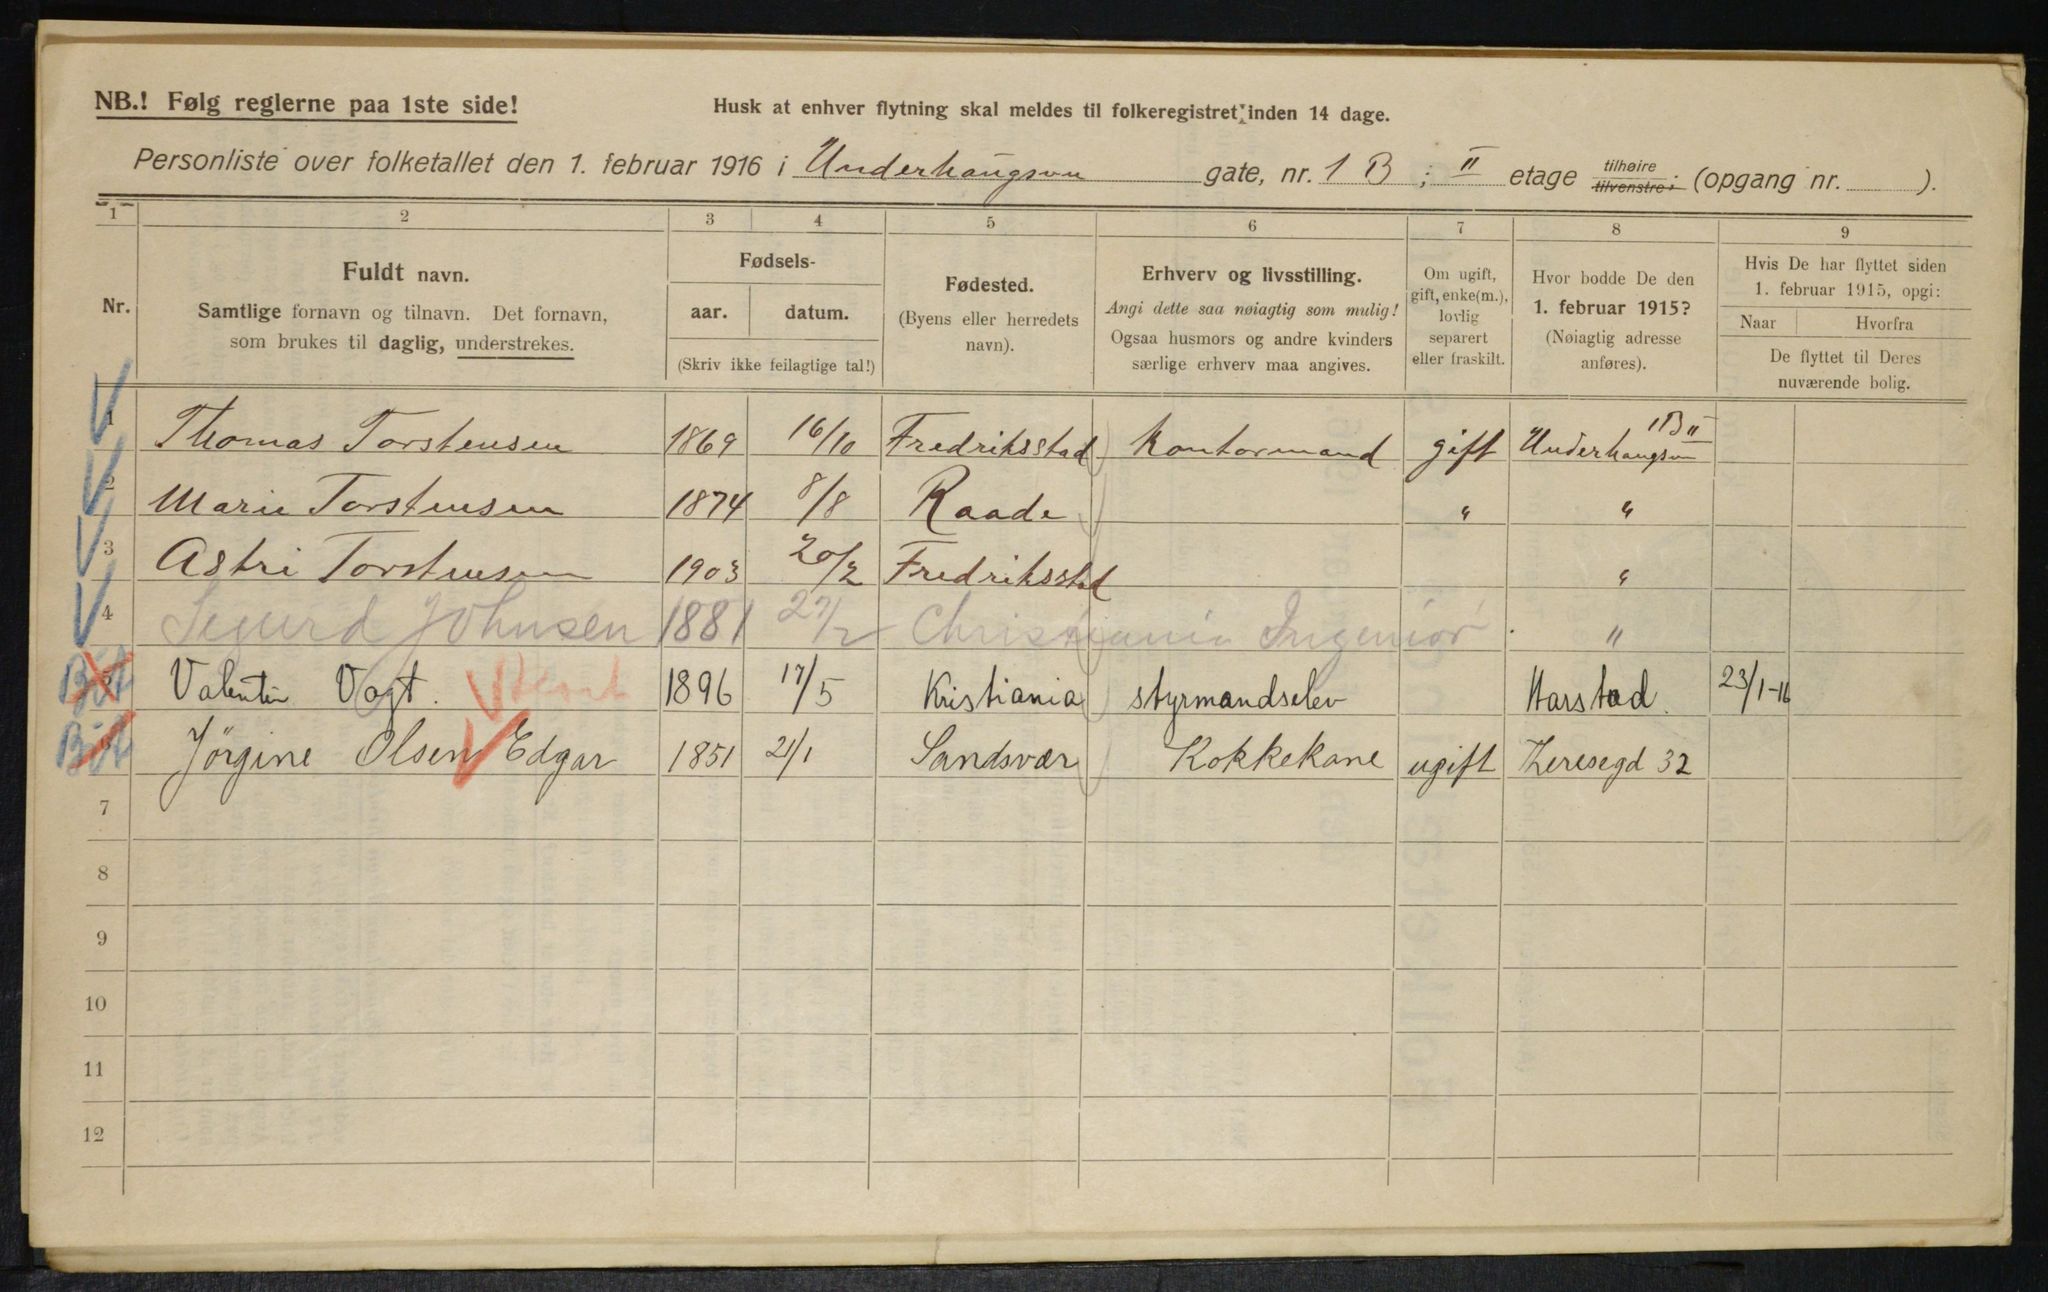 NB.! Følg reglerne paa 1ste side!
Husk at enhver flytning skal meldes til folkeregistret inden 14 dage.
Personliste over folketallet den 1. februar 1916 i Underhaugsvn gate, nr. 1 B ; II etage tilhøire tilvenstre; (opgang nr. ).
1 2 3 4 5 6 7 8 9
Nr.
Fuldt navn.
Samtlige fornavn og tilnavn. Det fornavn,
som brukes til daglig, understrekes.
Fødsels-
aar. datum.
(Skriv ikke feilagtige tal!)
Fødested.
(Byens eller herredets
navn).
Erhverv og livsstilling.
Angi dette saa nøiagtig som mulig!
Ogsaa husmors og andre kvinders
særlige erhverv maa angives.
Om ugift,
gift, enke(m.),
lovlig
separert
eller fraskilt.
Hvor bodde De den
1. februar 1915?
(Nøiagtig adresse
anføres).
Hvis De har flyttet siden
1. februar 1915, opgi:
Naar Hvorfra
De flyttet til Deres
nuværende bolig.
1 Thomas Torstensen 1869 16/10 Fredriksstad Kontormand gift Underhaugsvn 1B II
2 Marie Torstensen 1874 8/8 Raade " "
3 Astri Torstensen 1903 20/2 Fredriksstad "
4 Sigurd Johnsen 1881 27/2 Christiania Ingeniør "
5 Valentin Vogt. 1896 17/5 Kristiania styrmandselev Harstad. 23/1-16
6 Jörgine Olsen Edgar 1851 21/1 Sandsvær Kokkekone ugift Theresegd 32
7
8
9
10
11
12